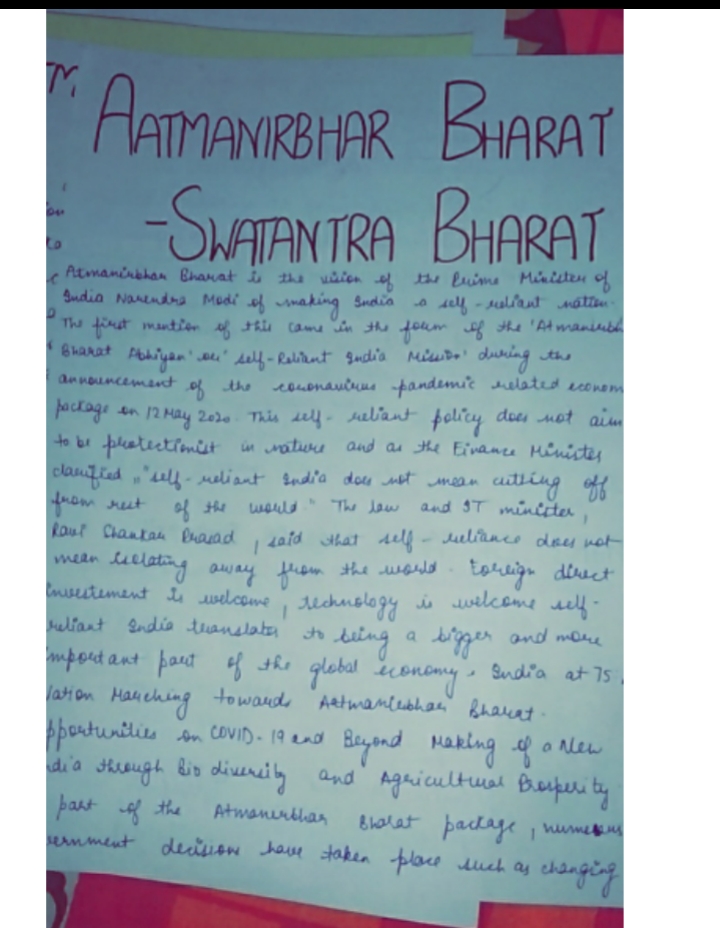 AATMANIRBHAR BHARAT
-SWATANTRA BHARAT
Atmanirbhar Bharat is the vision of the Prime Minister of
India Narendra Modi of making India a self-reliant nation.
The first mention of this came in the form of the 'Atmanirbh
Bharat Abhiyan' or 'self-Reliant India Mission' during the
announcement of the coronavirus pandemic related econom
package on 12 May 2020. This self-reliant policy does not aim
to be protectionist in nature and as the Finance Minister
clarified, "self-reliant India does not mean cutting off
from rest of the world." The law and IT minister,
Ravi Shankar Prasad, said that self-reliance does not
mean isolating away from the world. Foreign direct
investement is welcome, technology is welcome self-
reliant India translates to being a bigger and more
important part of the global economy. India at 75.
Nation Marching towards Aatmanirbhar Bharat.
pportunities on COVID-19 and Beyond Making of a New
ndia through Bio diversity and Agricultural Prosperity
part of the Atmanirbhar Bharat package, numerous
ernment decisions have taken place such as changing